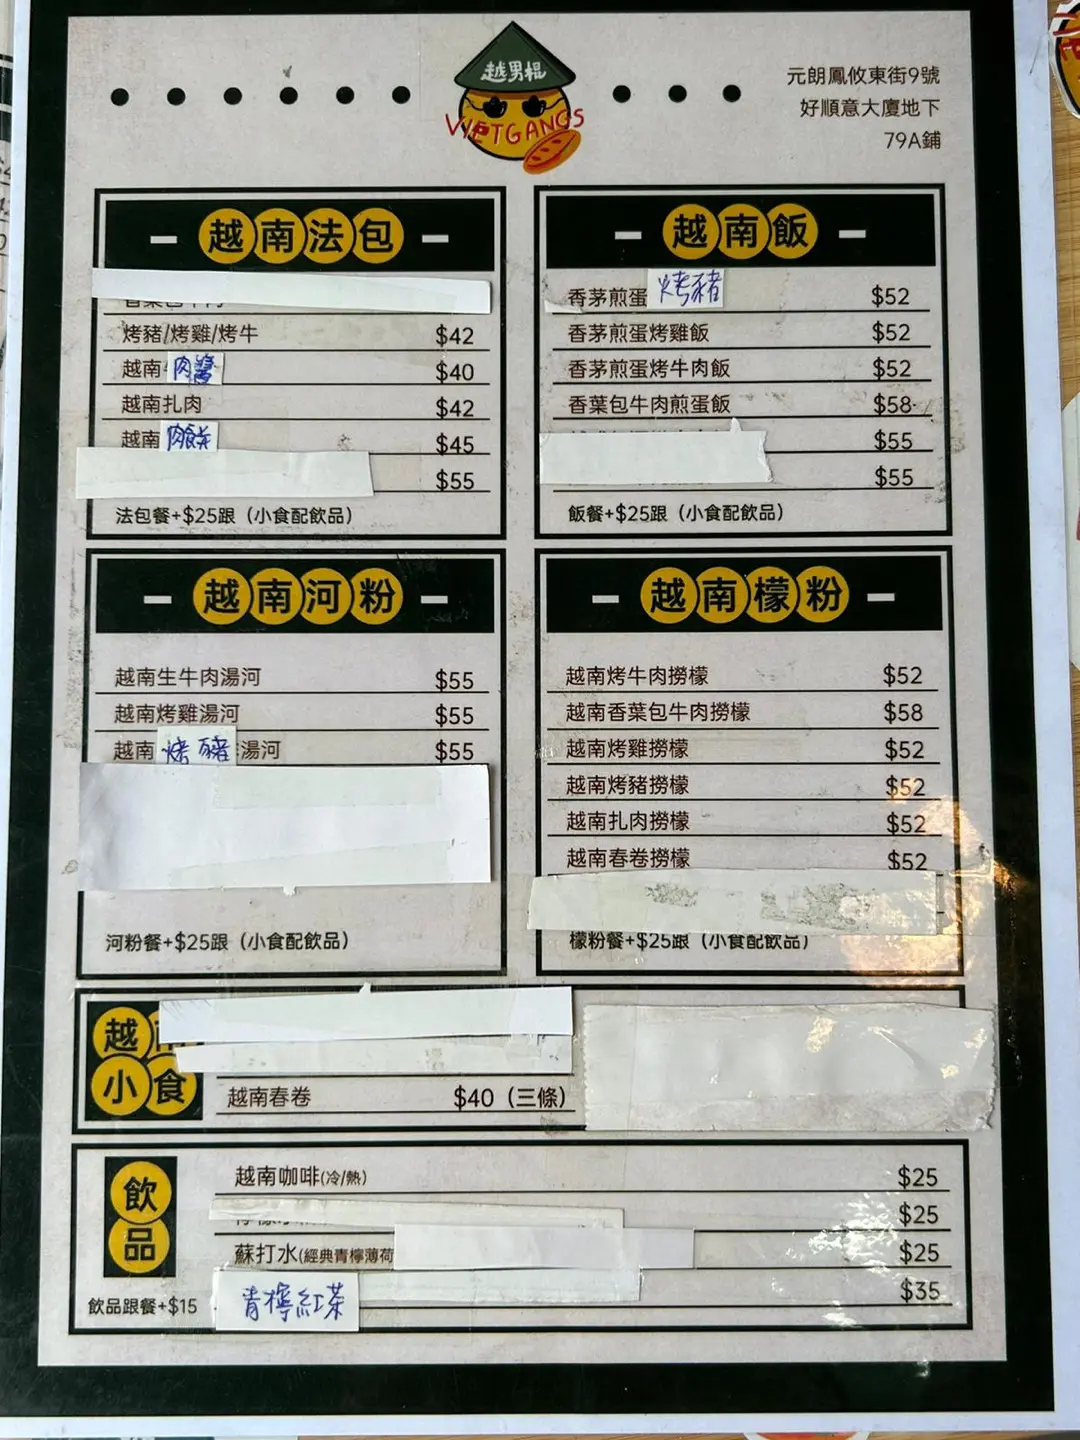 越男棍
VIETGANGS
元朗鳳攸東街9號
好順意大廈地下
79A鋪
越南法包
烤豬/烤雞/烤牛 $42
越南 肉醬 $40
越南扎肉 $42
越南 肉餅 $45
$55
法包餐+$25跟（小食配飲品）
越南飯
香茅煎蛋 烤豬 $52
香茅煎蛋烤雞飯 $52
香茅煎蛋烤牛肉飯 $52
香葉包牛肉煎蛋飯 $58
$55
$55
飯餐+$25跟（小食配飲品）
越南河粉
越南生牛肉湯河 $55
越南烤雞湯河 $55
越南 烤豬 湯河 $55
河粉餐+$25跟（小食配飲品）
越南檬粉
越南烤牛肉撈檬 $52
越南香葉包牛肉撈檬 $58
越南烤雞撈檬 $52
越南烤豬撈檬 $52
越南扎肉撈檬 $52
越南春卷撈檬 $52
檬粉餐+$25跟（小食配飲品）
越南
小食
越南春卷 $40（三條）
飲品
越南咖啡(冷/熱) $25
$25
蘇打水(經典青檸薄荷 $25
青檸紅茶 $35
飲品跟餐+$15